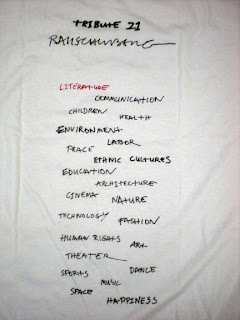 TRIBUTE 21
RAUSCHENBERG
LITERATURE
COMMUNICATION
CHILDREN HEALTH
ENVIRONMENT
PEACE LABOR
ETHNIC CULTURES
EDUCATION
ARCHITECTURE
CINEMA NATURE
TECHNOLOGY FASHION
HUMAN RIGHTS ART
THEATER
SPORTS DANCE
MUSIC
SPACE
HAPPINESS